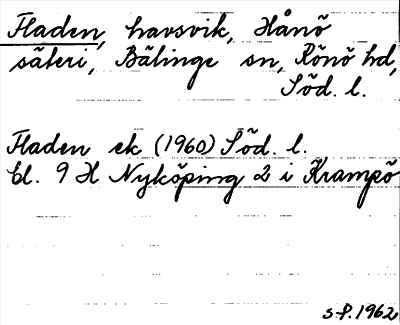 Fladen, havsvik, Hånö
säteri, Bälinge sn, Rönö hd,
Söd. l.
Fladen ek (1960) Söd. l.
Bl. 9 H Nyköping 2 i Krampö
S-P. 1962